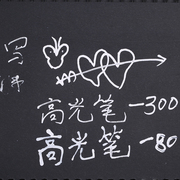 写
高光笔-300
高光笔-80